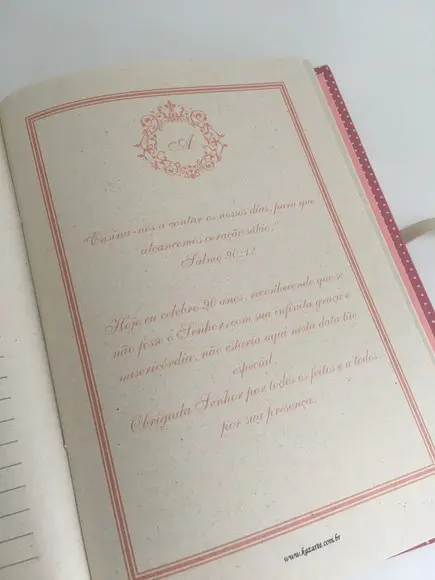 A
"Ensina-nos a contar os nossos dias, para que
alcancemos coração sábio."
Salmo 90:12
Hoje eu celebro 90 anos, reconhecendo que se
não fosse o Senhor, com sua infinita graça e
misericórdia, não estaria aqui nesta data tão
especial.
Obrigada Senhor por todos os feitos e a todos
por sua presença.
www.kazarte.com.br